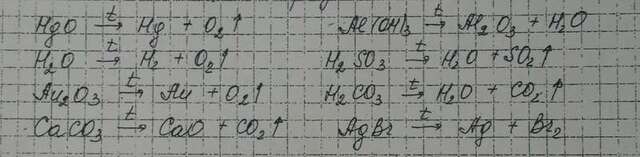 HgO →(t) Hg + O₂↑
H₂O →(t) H₂ + O₂↑
Au₂O₃ →(t) Au + O₂↑
CaCO₃ →(t) CaO + CO₂↑
Al(OH)₃ →(t) Al₂O₃ + H₂O
H₂SO₃ →(t) H₂O + SO₂↑
H₂CO₃ →(t) H₂O + CO₂↑
AgBr →(t) Ag + Br₂